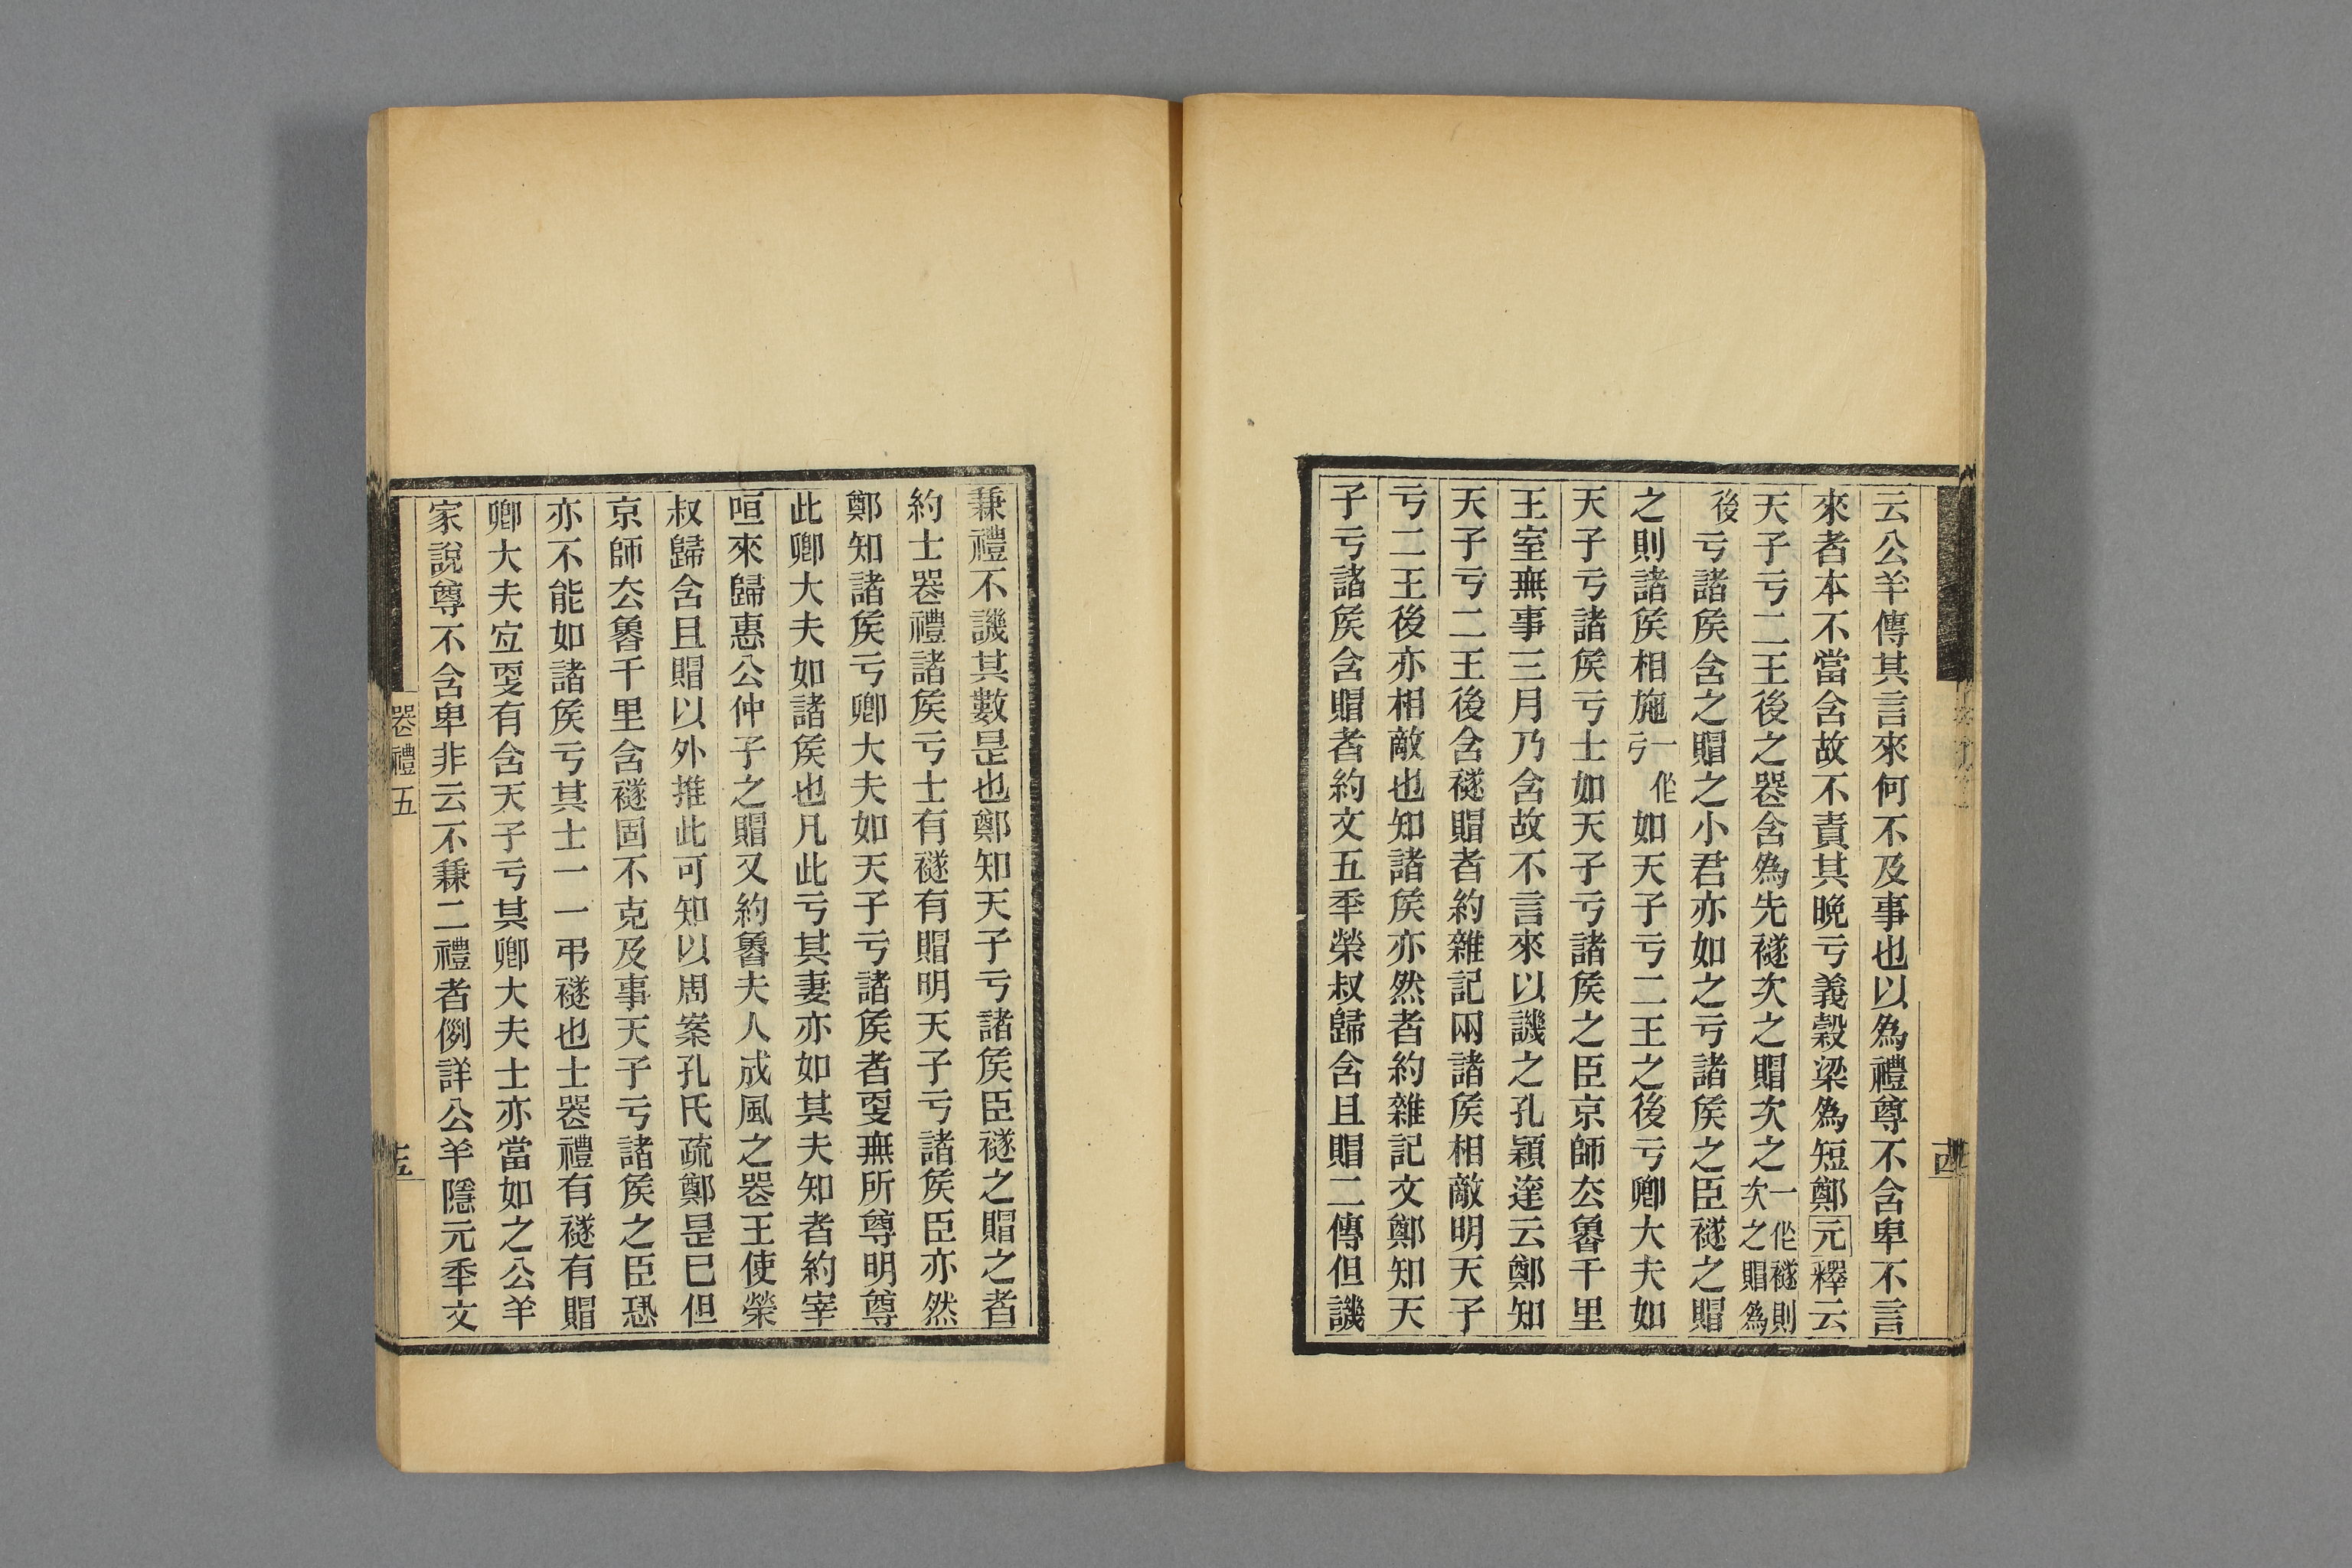 云公羊傳其言來何不及事也以為禮尊不含卑不言
來者本不當含故不責其晚亏義榖梁為短鄭元釋云
天子亏二王後之喪含為先襚次之賵次之一作襚則次之賵為
後亏諸矦含之賵之小君亦如之亏諸矦之臣襚之賵
之則諸矦相施一作亏如天子亏二王之後亏卿大夫如
天子亏諸矦亏士如天子亏諸矦之臣京師厺魯千里
王室無事三月乃含故不言來以譏之孔穎達云鄭知
天子亏二王後含襚賵者約雜記兩諸矦相敵明天子
亏二王後亦相敵也知諸矦亦然者約雜記文鄭知天
子亏諸矦含賵者約文五秊榮叔歸含且賵二傳但譏
兼禮不譏其數是也鄭知天子亏諸矦臣襚之賵之者
約士喪禮諸矦亏士有襚有賵明天子亏諸矦臣亦然
鄭知諸矦亏卿大夫如天子亏諸矦者更無所尊明尊
此卿大夫如諸矦也凡此亏其妻亦如其夫知者約宰
咺來歸惠公仲子之賵又約魯夫人成風之喪王使榮
叔歸含且賵以外推此可知以周案孔氏疏鄭是已但
京師厺魯千里含襚固不克及事天子亏諸矦之臣恐
亦不能如諸矦亏其士一一弔襚也士喪禮有襚有賵
卿大夫宜更有含天子亏其卿大夫士亦當如之公羊
家說尊不含卑非云不兼二禮者例詳公羊隱元秊文
喪禮五